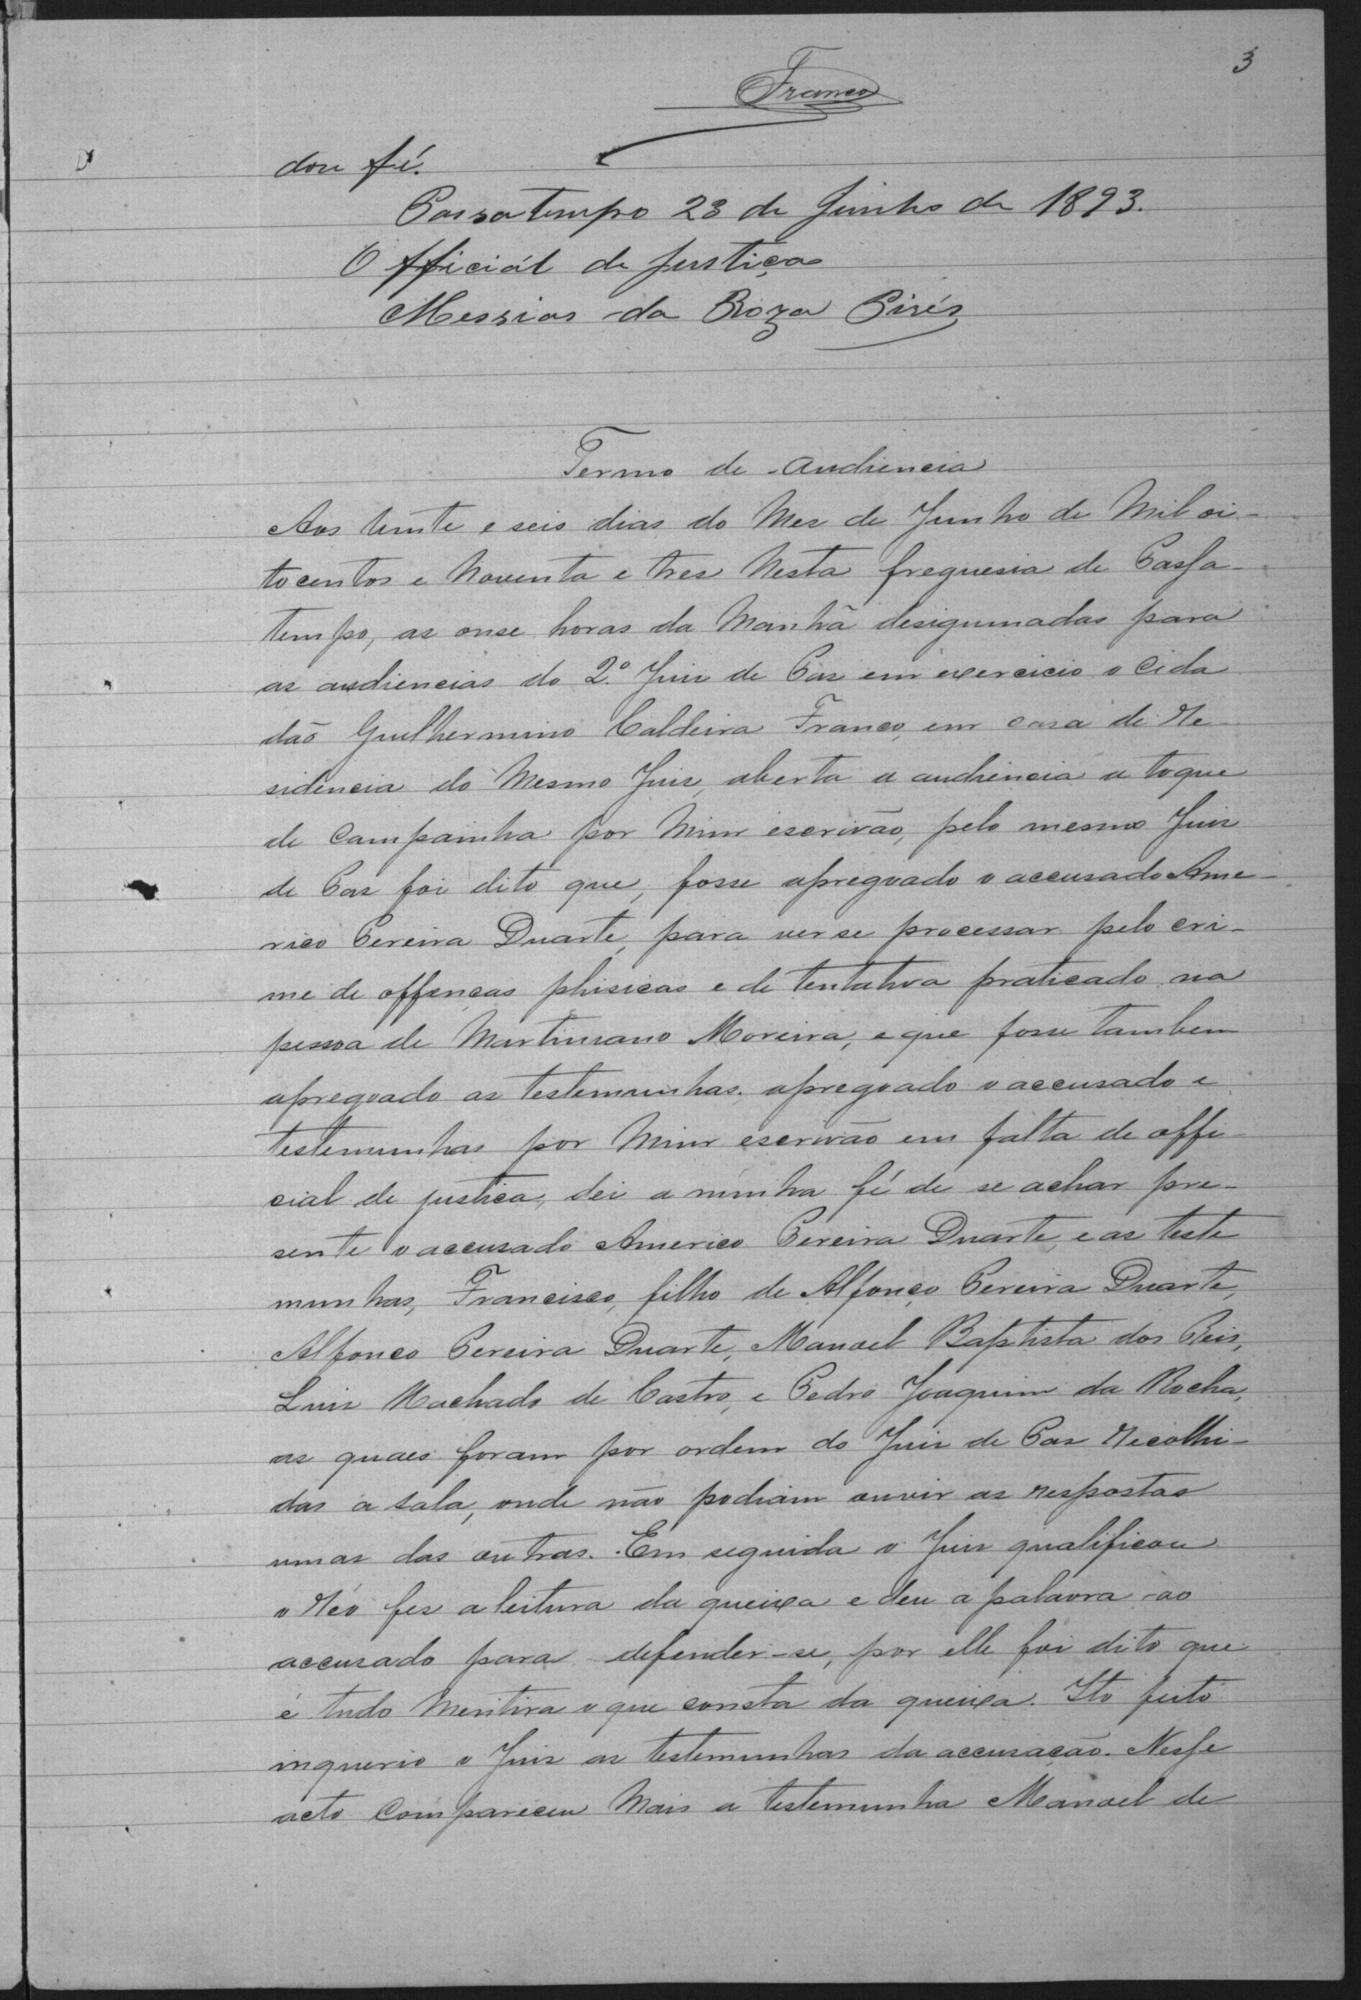 3
Franco
dou fé.
Passatempo 23 de Junho de 1893.
O Officiál de Justiça
Messias da Roza Pirés
Termo de Audiencia
Aos vinte e seis dias do Mez de Junho de Mil oi-
tocentos e Noventa e tres Nesta freguesia de Passa-
tempo, as onse horas da Manhã desiguinadas para
as audiencias do 2º Juiz de Paz em exercicio o Cida
dão Guilhermino Caldeira Franco, em casa de re-
sidencia do Mesmo Juiz, aberta a audiencia a toque
de Campainha por Mim escrivão, pelo mesmo Juiz
de Paz foi dito que, fosse apregoado o accusado Ame-
rico Pereira Duarte, para ver se processar pelo cri-
me de offenças phisicas e de tentativa praticado na
pessoa de Martiniano Moreira, e que fosse tambem
apregoado as testemunhas, apregoado o accusado e
testemunhas por Mim escrivão em falta de offi
cial de justica, dei a minha fé de se achar pre-
sente o accusado Americo Pereira Duarte, e as teste
munhas, Francisco, filho de Alfonço Pereira Duarte,
Alfonco Pereira Duarte, Manoel Baptista dos Reis,
Luiz Machado de Castro, e Pedro Joaquim da Rocha,
as quaes foram por ordem do Juiz de Paz recolhi-
das a sala, onde não podiam ouvir as respostas
umas das outras. Em seguida o Juiz qualificou
o réo fez a leitura da queixa e deu a palavra ao
accusado para defender-se, por elle foi dito que
é tudo Mentira o que consta da queixa. Isto feito
inquerio o Juiz as testemunhas da accusação. Nesse
acto Compareceu Mais a testemunha Manoel de